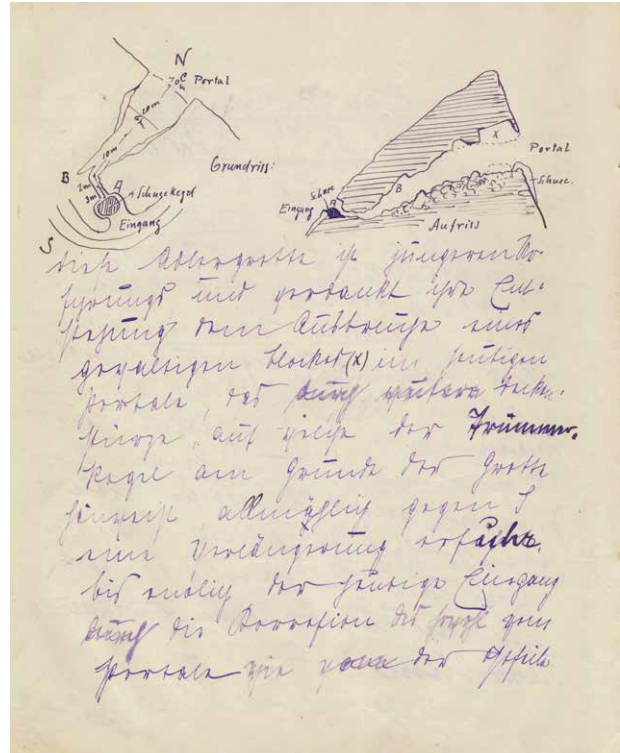 N
C Portal
20m
10m
B
2m
3m
A
Schneekegel
Eingang
S
Grundriss:
X
Portal
Schnee
B
Schnee
Eingang
A
Aufriss
diese Adlergrotte ist jüngeren
und verdankt ihre Ent-
stehung dem Ausbruche eines
gewaltigen Blockes (x) im heutigen
Portale, das durch weitere Decken-
stürze, auf welche der Trümmer-
kegel am Grunde der Grotte
hinweist allmählich gegen S
eine Verlängerung erfuhr.
bis endlich der heutige Eingang
durch die Korrosion des sowohl vom
Portale wie von der